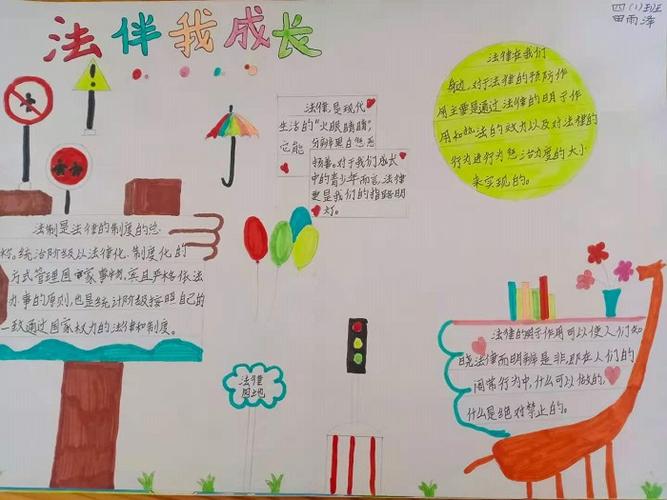 法伴我成长
四(1)班
田雨泽
法律是现代
生活的“火眼睛睛”,
它能分辨黑白惩恶
扬善。对于我们成长
中的青少年而言,法律
更是我们的指路明
灯。
法律在我们
身边,对于法律的预防作
用主要是通过法律的明示作
用和执法的效力以及对法律的
行为进行为惩治力度的大小
来实现的。
法制是法律的制度的总
称。统治阶级以法律化、制度化的
方式管理国家事务,实且严格依法
办事的原则,也是统计阶级按照自己的
一致通过国家权力的法律和制度。
法律
园地
法律的明示作用可以使人们知
晓法律而明辨是非,即在人们的
日常行为中,什么可以做的,
什么是绝对禁止的。